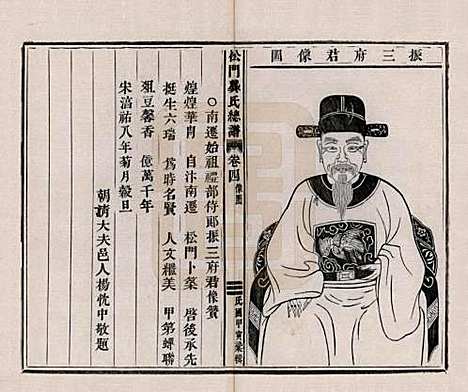 振三府君像圖
松門龔氏總譜 卷四 像圖
民國甲寅彙輯
○南遷始祖禮部侍郎振三府君像贊
煌煌華胄 自汴南遷 松門卜築 啓後承先
挺生六瑞 爲時名賢 人文繼美 甲第蟬聯
俎豆馨香 億萬千年
宋淳祐八年菊月穀旦
朝請大夫邑人楊忱中敬題